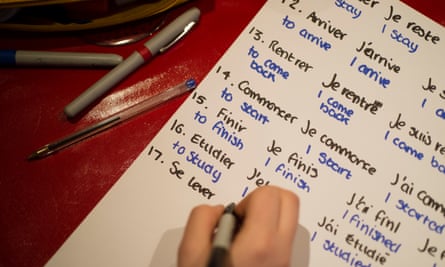 Je reste
to stay
I stay
12. Arriver J'arrive
to arrive I arrive
13. Rentrer Je rentre Je suis
to come back I come back I come back
14. Commencer Je commence J'ai
to start I start I started
15. Finir Je finis J'ai fini
to finish I finish I finished
16. Etudier J'é J'ai étudié
to study I studied
17. Se lever